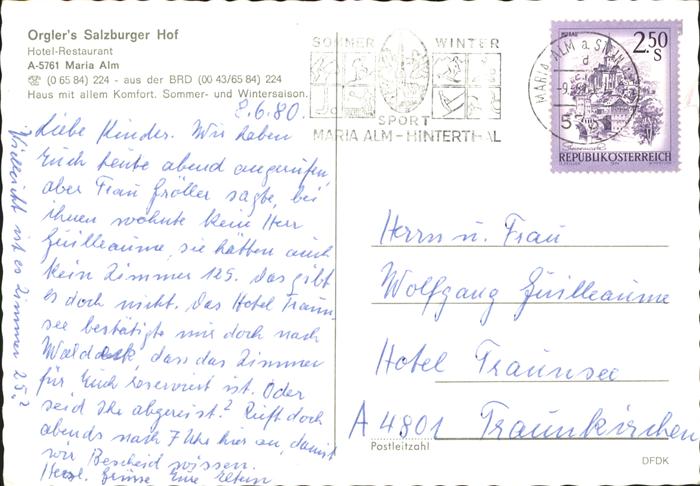 Orgler's Salzburger Hof
Hotel-Restaurant
A-5761 Maria Alm
☏ (0 65 84) 224 - aus der BRD (00 43/65 84) 224
Haus mit allem Komfort. Sommer- und Wintersaison.
8.6.80.
Liebe Kinder. Wir haben
Euch heute abend angerufen,
aber Frau Gröller sagte, bei
ihnen wohnte kein Herr
Guilleaume, sie hätten auch
kein Zimmer 125. Das gibt
es doch nicht. Das Hotel Traun-
see bestätigte mir doch nach
Waldeck, dass das Zimmer
für Euch reserviert ist. Oder
seid Ihr abgereist? Ruft doch
abends nach 7 Uhr hier an, damit
wir Bescheid wissen.
Herzl. Grüsse Eure Eltern
Vielleicht ist es Zimmer 25?
SOMMER WINTER
SPORT
MARIA ALM-HINTERTHAL
MARIA ALM a. STEIN
2.50
S
REPUBLIK ÖSTERREICH
Herrn u. Frau
Wolfgang Guilleaume
Hotel Traunsee
A 4801 Traunkirchen
Postleitzahl
DFDK